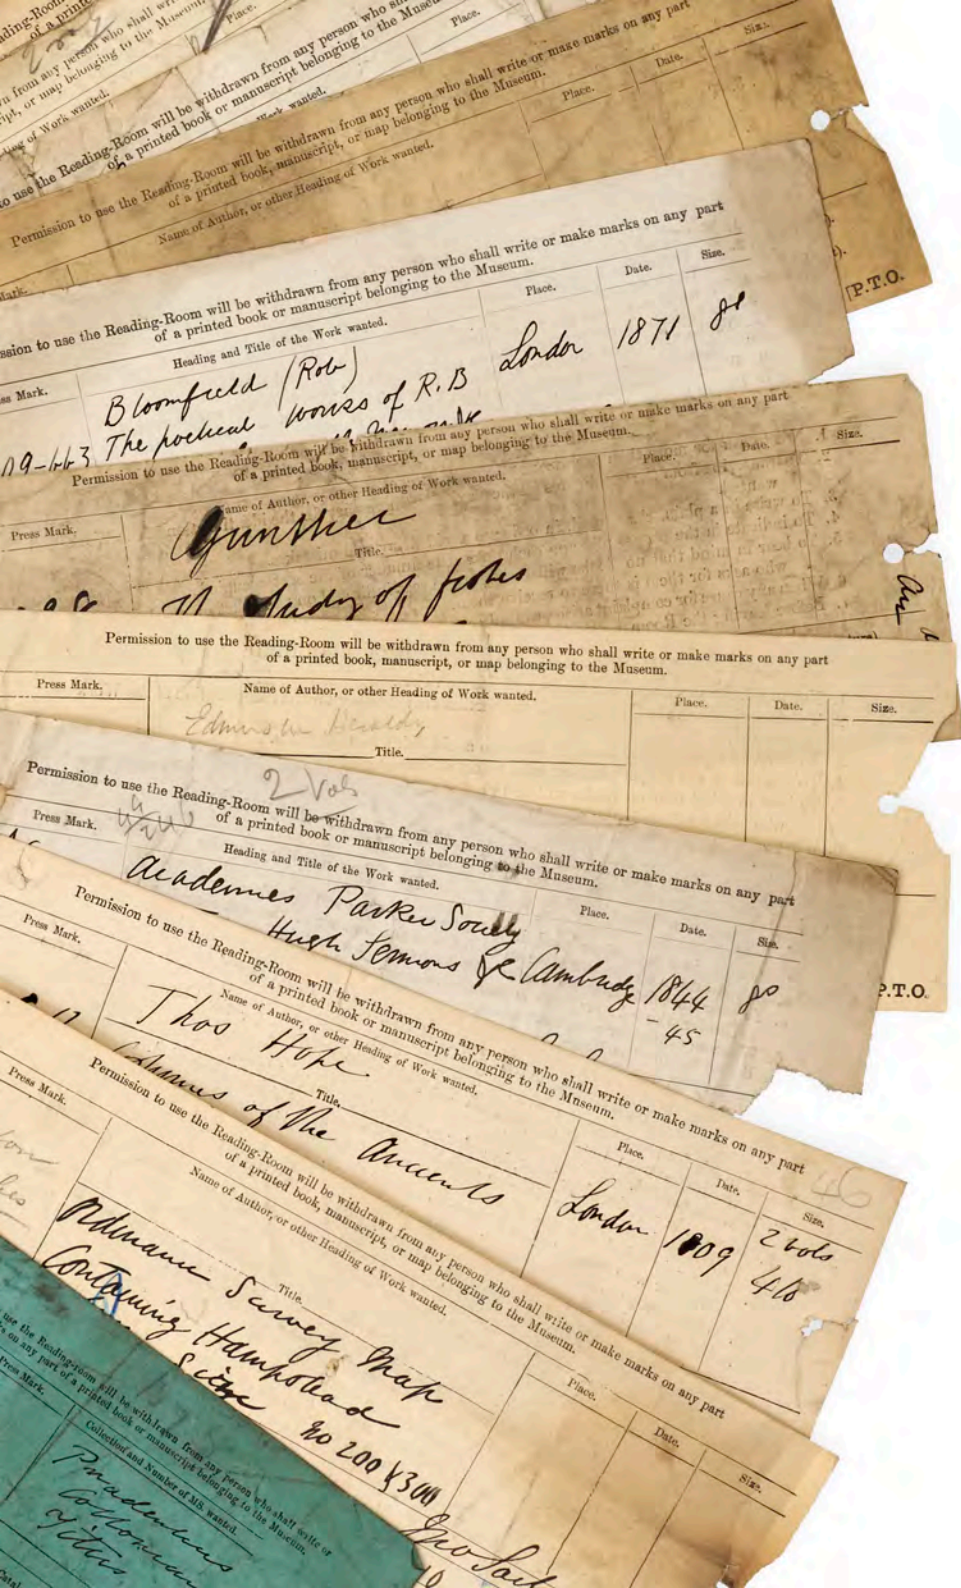 ading-Room
of a printe
n from any person who shall wr
Place.
ript, or map belonging to the Museum.
ading of Work wanted.
to use the Reading-Room will be withdrawn from any person who sh
of a printed book, manuscript, or map belonging to the Museum
Place.
Work wanted.
Permission to use the Reading-Room will be withdrawn from any person who shall write or make marks on any part
of a printed book, manuscript, or map belonging to the Museum.
Name of Author, or other Heading of Work wanted.
Place.
Date.
Size.
Mark.
[P.T.O.
ssion to use the Reading-Room will be withdrawn from any person who shall write or make marks on any part
of a printed book or manuscript belonging to the Museum.
ss Mark.
Heading and Title of the Work wanted.
Place.
Date.
Size.
Bloomfield (Rob)
London 1871 8o
The poetical works of R.B
Permission to use the Reading-Room will be withdrawn from any person who shall write or make marks on any part
of a printed book, manuscript, or map belonging to the Museum.
Press Mark.
Name of Author, or other Heading of Work wanted.
Place.
Date.
Size.
Gunther
Title.
study of fishes
Permission to use the Reading-Room will be withdrawn from any person who shall write or make marks on any part
of a printed book, manuscript, or map belonging to the Museum.
Press Mark.
Name of Author, or other Heading of Work wanted.
Place.
Date.
Size.
Heraldy
Title.
2 Vols
Permission to use the Reading-Room will be withdrawn from any person who shall write or make marks on any part
of a printed book or manuscript belonging to the Museum.
Press Mark.
Heading and Title of the Work wanted.
Place.
Date.
Size.
Academies Parker Society
Hugh Sermons &c Cambridge 1844 8o
-45
P.T.O.
Permission to use the Reading-Room will be withdrawn from any person who shall write or make marks on any part
of a printed book or manuscript belonging to the Museum.
Press Mark.
Name of Author, or other Heading of Work wanted.
Place.
Date.
Size.
46
Thos Hope
Title.
Costumes of the Ancients
London 1809 2 vols
4to
Permission to use the Reading-Room will be withdrawn from any person who shall write or make marks on any part
of a printed book, manuscript, or map belonging to the Museum.
Press Mark.
Name of Author, or other Heading of Work wanted.
Place.
Date.
Size.
Title.
Ordnance Survey Map
Containing Hampstead
No 200 & 300
use the Reading-room will be withdrawn from any person who shall write or
s on any part of a printed book or manuscript belonging to the Museum.
Press Mark.
Collection and Number of MS. wanted.
Prudentius
Cottonian
Titus